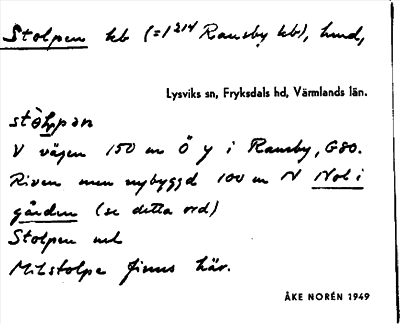 Stolpen hb (=1²¹⁴ Ransby hb), hmd,
Lysviks sn, Fryksdals hd, Värmlands län.
V vägen 150 m Ö y i Ransby, G80.
Riven men nybyggd 100 m N Nol i
gården (se detta ord)
Stolpen
Milstolpe finns här.
ÅKE NORÉN 1949